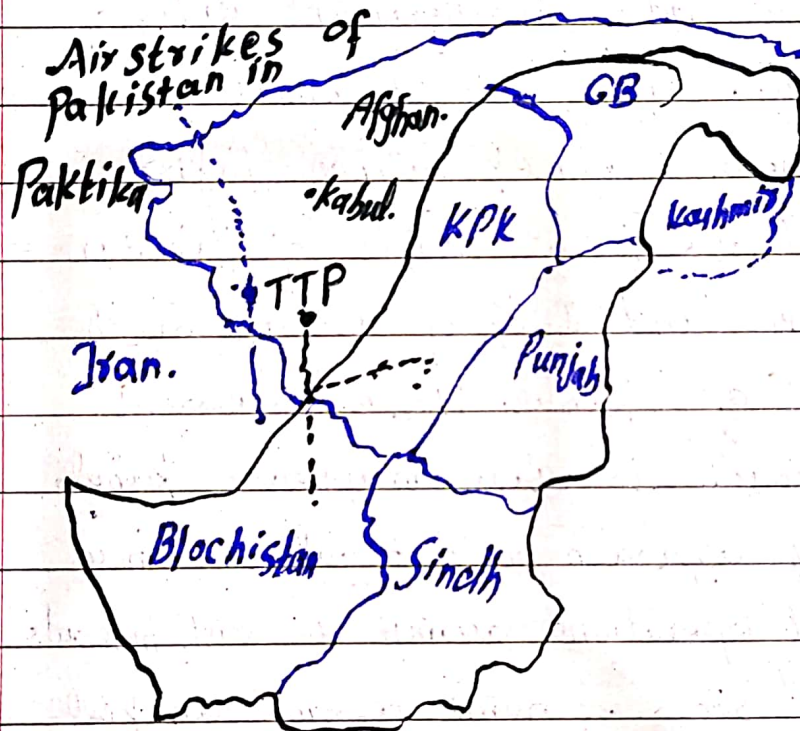 Air strikes of
Pakistan in
Paktika
Afghan.
GB
•Kabul.
KPK
Kashmir
TTP
Iran.
Punjab
Blochistan
Sindh